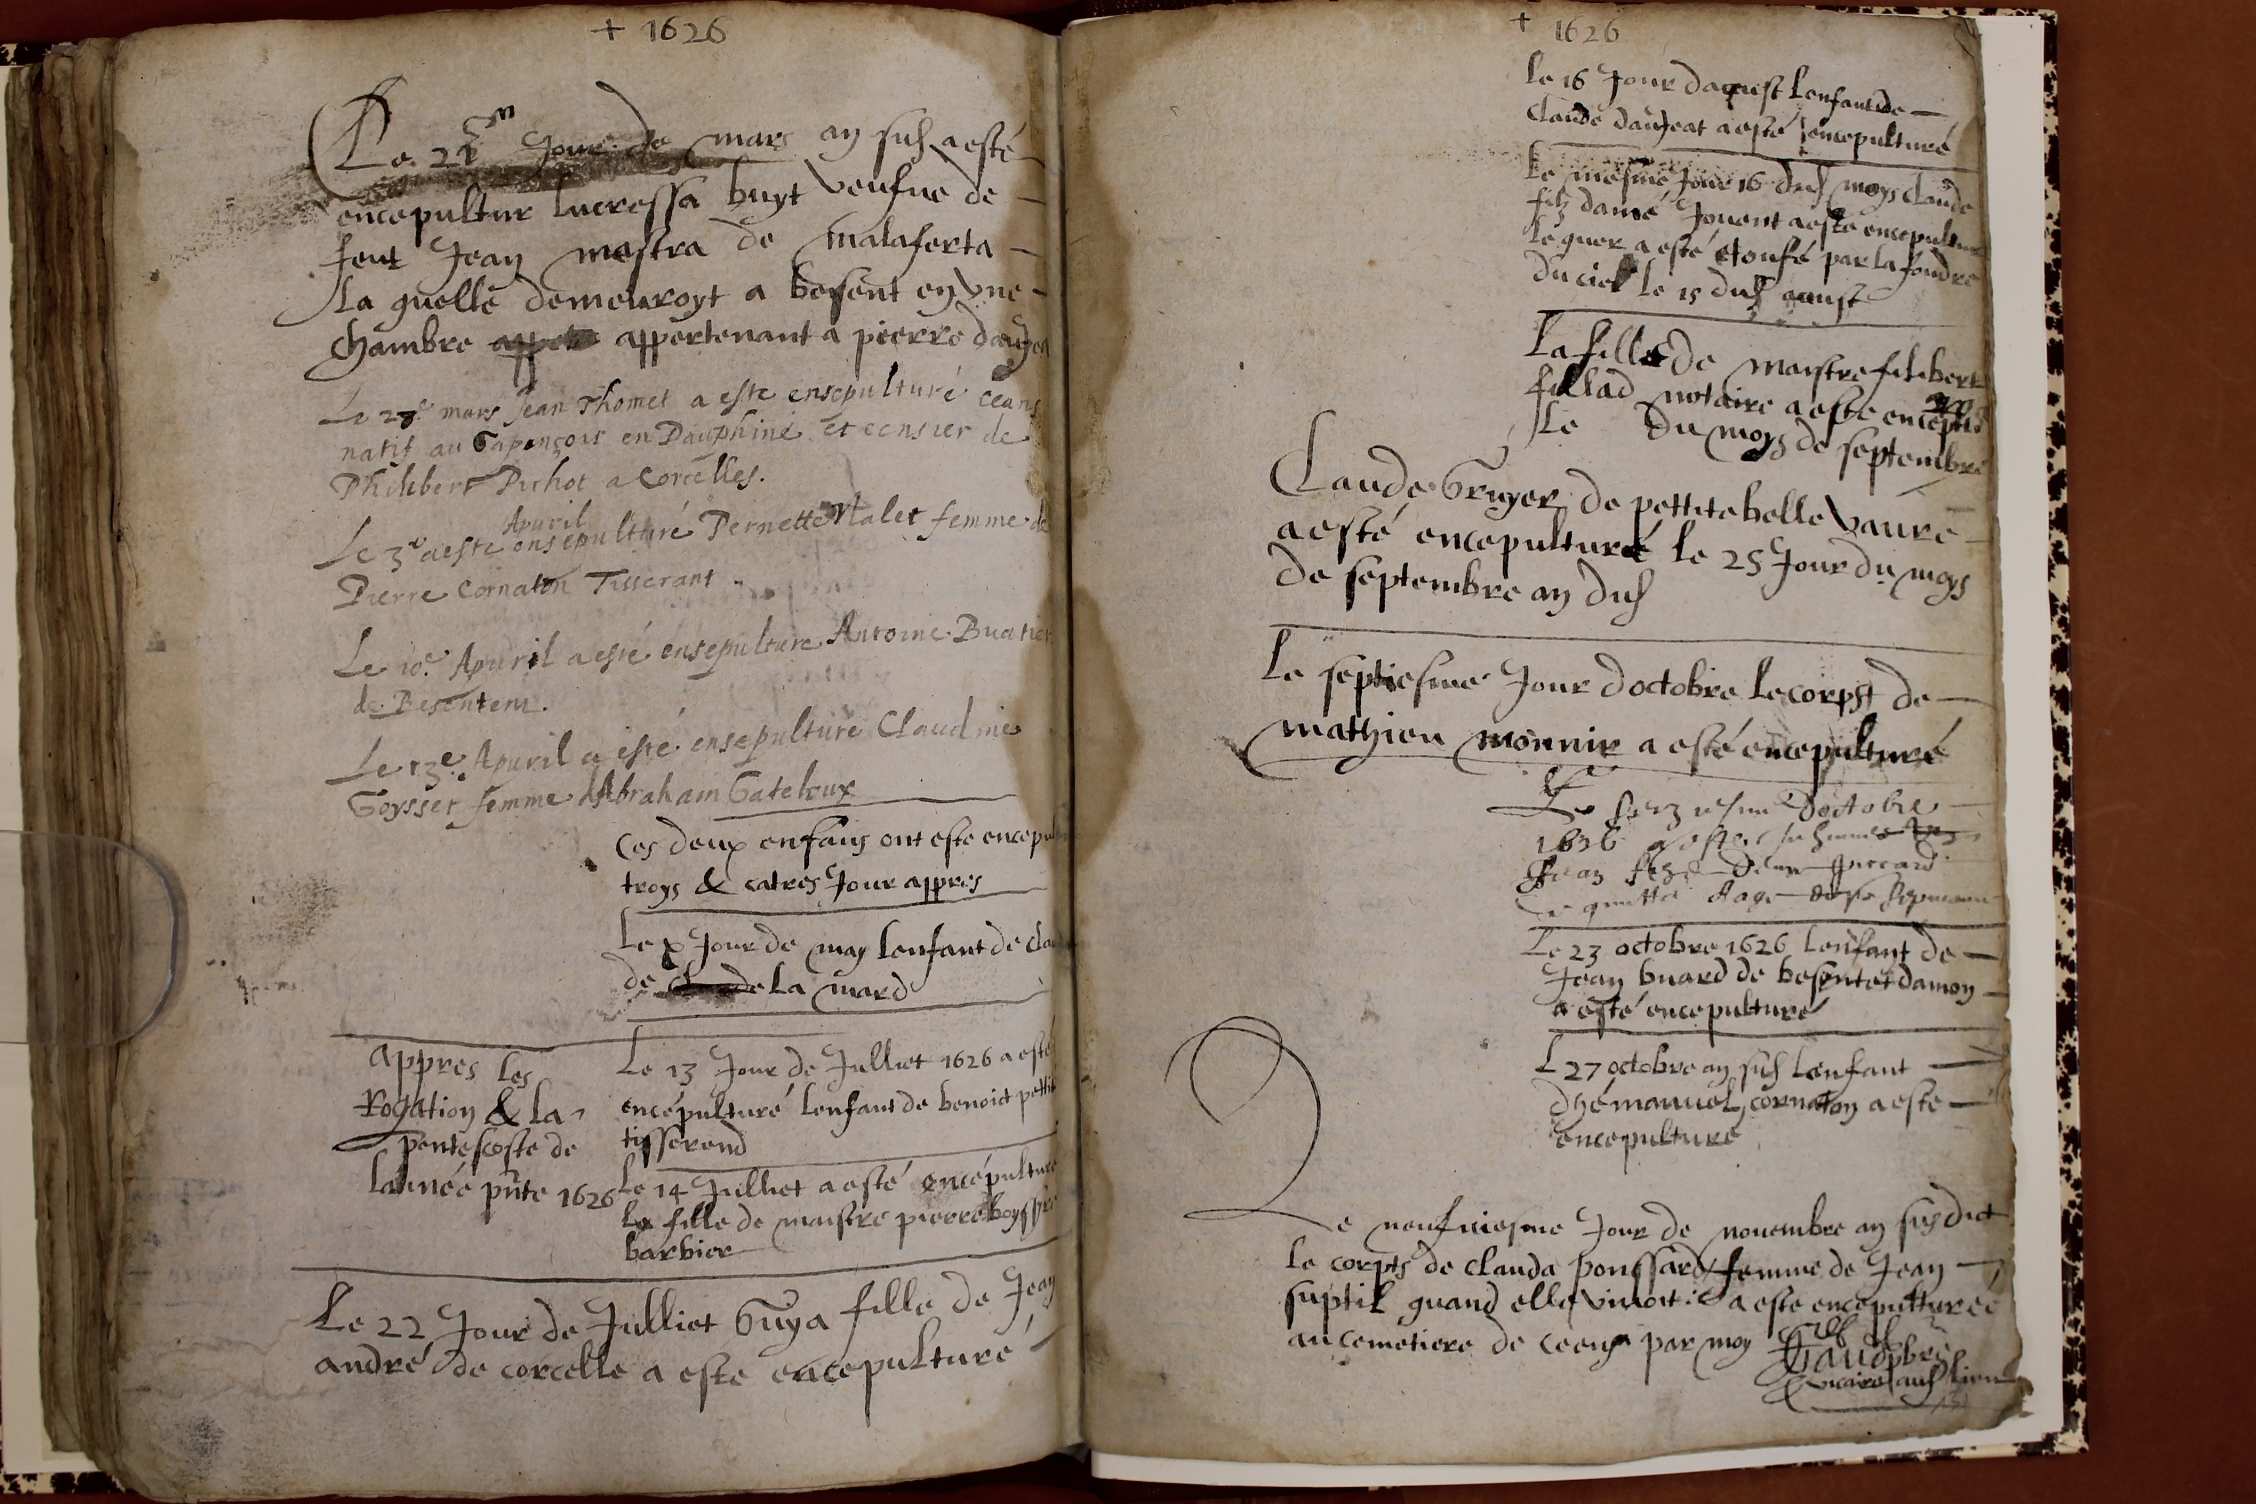 + 1626
Le 21 Jour de mars an sus a esté
encepultur lucressa buyt veufue de
feut Jean mestra de malaferta
la quelle demeuroyt a besent en vne
chambre appertenant a pierre
Le 28e mars Jean Thomet a este ensepulturé ceans
natif au Gapençois en Dauphiné et censier de
Philibert Pichot a Corcelles.
Apuril
Le 3e a este ensepulturé Pernette Malet femme de
Pierre Cornaton Tisserant
Le 10e Apuril a esté ensepulture Antoine Buatier
de Besentent.
Le 13e Apuril a esté ensepulturé Claudine
Goysset femme d'Abraham Gateloux
Ces deux enfans ont este encepul
troys & catres Jour appres
Le x Jour de may lenfant de clau
de la mard
appres les
Rogation & la
pentescoste de
lannée pnte 1626
Le 13 Jour de Julliet 1626 a esté
encépulturé lenfant de benoict pettit
tisserend
Le 14 Julliet a esté encépulturé
la fille de maistre pierre
barbier
Le 22 Jour de Julliet Guya fille de Jean
andré de corcelle a este encepulturé
+ 1626
le 16 Jour daoust lenfant de
Claude daujeat a esté encepulturé
Le mesme Jour 16 dud moys Claude
filz damé Jouent a este encepultur
lequer a esté etoufé par la foudre
du ciel le 15 dud aoust
La fille de maistre filibert
fillad notaire a este encepult
Le du moys de septembre
Claude Gruyer de pettite belle vaure
a esté encepulturé le 25 Jour du moys
de septembre an dud
Le septiesme Jour doctobre le corpst de
mathieu monnir a esté encepulturé
Le doctobre
1626 a este
Jean filz
Le 23 octobre 1626 lenfant de
Jean buard de besentet damon
a esté encepulturé
L 27 octobre an sus lenfant
dhémanuel cornaton a este
encepulturé
Le neufuiesme Jour de nouembre an susdict
le corpts de clauda ponssard femme de Jean
suptil quand elle viuoit a este encepulturée
au cemetiere de ceens par moy
vicaire aud lieu